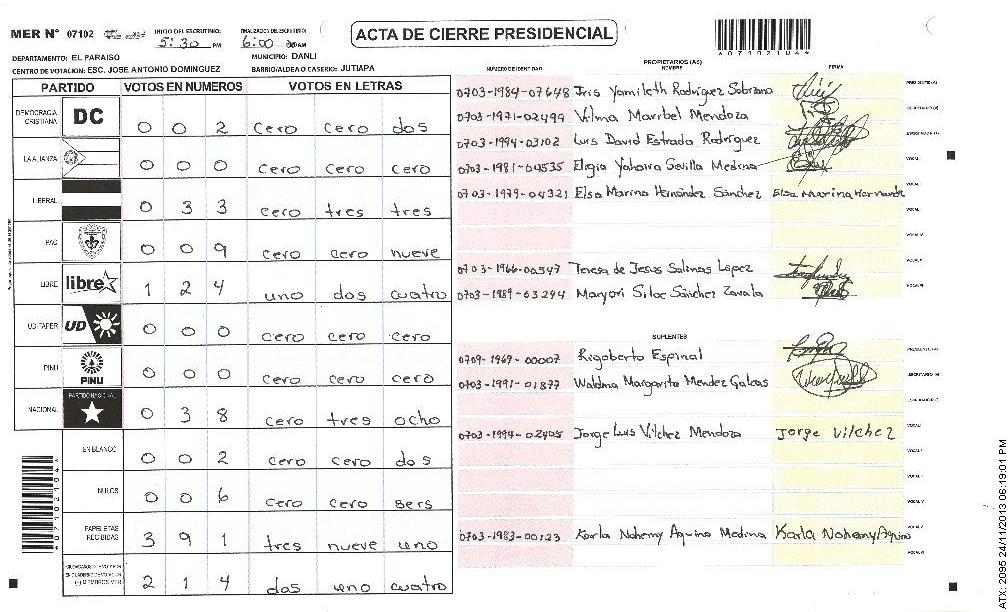 MER N° 07102
INICIO DEL ESCRUTINIO:
5:30 PM
FINALIZACION DEL ESCRUTINIO:
6:00
ACTA DE CIERRE PRESIDENCIAL
*07102104*
DEPARTAMENTO: EL PARAISO
MUNICIPIO: DANLI
CENTRO DE VOTACION: ESC. JOSE ANTONIO DOMINGUEZ
BARRIO/ALDEA O CASERIO: JUTIAPA
PARTIDO VOTOS EN NUMEROS VOTOS EN LETRAS
DEMOCRACIA CRISTIANA DC 0 0 2 cero cero dos
LA ALIANZA 0 0 0 cero cero cero
LIBERAL 0 3 3 cero tres tres
PAC 0 0 9 cero cero nueve
LIBRE libre 1 2 4 uno dos cuatro
UD-FAPER UD 0 0 0 cero cero cero
PINU PINU 0 0 0 cero cero cero
NACIONAL PARTIDO NACIONAL 0 3 8 cero tres ocho
EN BLANCO 0 0 2 cero cero dos
NULOS 0 0 6 cero cero seis
PAPELETAS RECIBIDAS 3 9 1 tres nueve uno
2 1 4 dos uno cuatro
PROPIETARIOS (AS)
NUMERO DE IDENTIDAD NOMBRE FIRMA
0703-1984-07648 Iris Yamileth Rodriguez Sobrano
0703-1971-02499 Vilma Maribel Mendoza
0703-1994-03102 Luis David Estrada Rodriguez
0703-1981-04535 Eligia Yahaira Sevilla Medina
0703-1979-04321 Elsa Marina Hernández Sánchez Elsa Marina Hernandez
0703-1966-00547 Teresa de Jesus Salinas Lopez
0703-1989-03244 Maryori Siloe Sánchez Zavala
SUPLENTES
0709-1969-00007 Rigoberto Espinal
0703-1991-01877 Waldina Margarita Mendez Galeas
0703-1994-02405 Jorge Luis Vilchez Mendoza Jorge Vilchez
0703-1983-00123 Karla Nohemy Aquino Medina Karla Nohemy Aquino
ATX: 2095 24/11/2013 06:19:01 PM